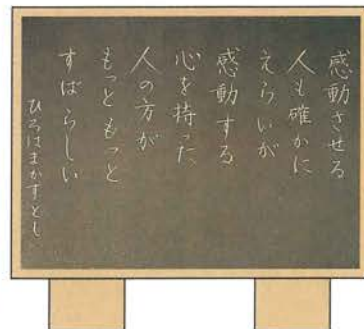 感動させる
人も確かに
えらいが
感動する
心を持った
人の方が
もっともっと
すばらしい
ひろはまかずとし